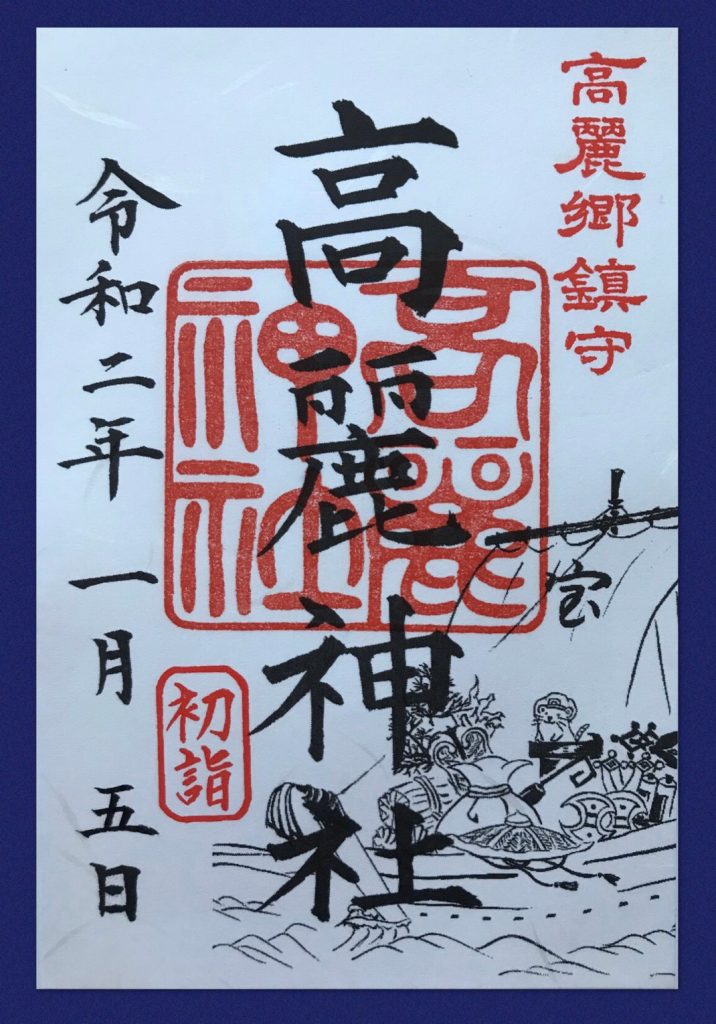 高麗郷鎮守
高麗神社
高麗
神社
宝
初詣
令和二年 一月 五日